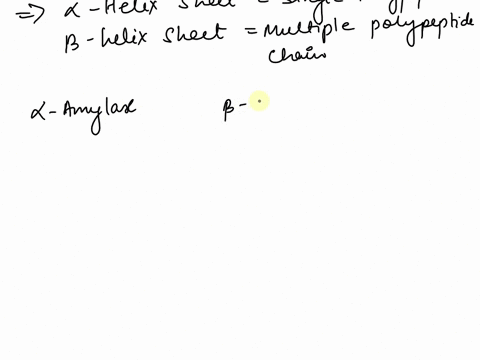 => α - Helix sheet = single
β - helix sheet = multiple polypeptide
chains
α - Amylase β -